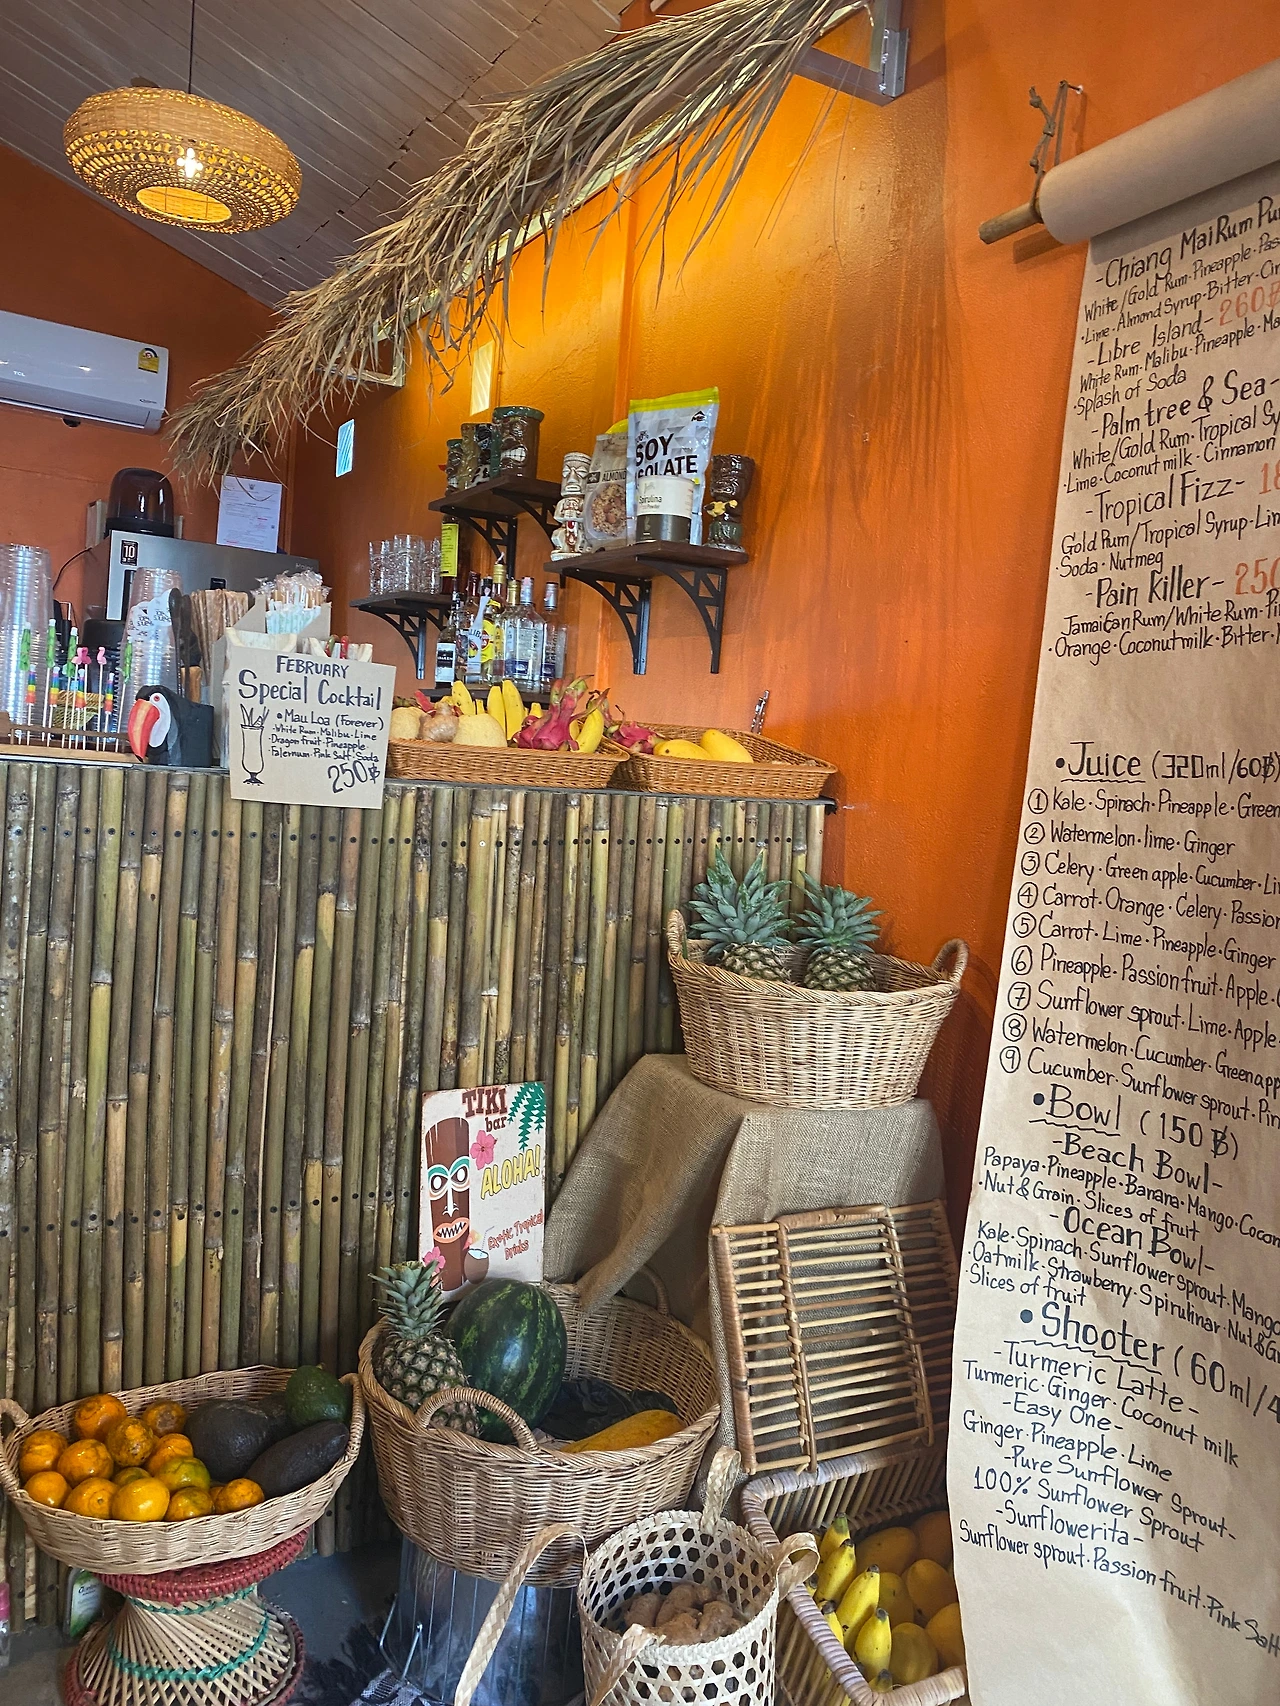 TCL
10
FEBRUARY
Special Cocktail
• Mau Loa (Forever)
-White Rum·Malibu·Lime
·Dragonfruit·Pineapple
·Falernum·Pink Salt·Soda
250฿
SOY
ISOLATE
ALMOND
Spirulina
TIKI
bar
ALOHA!
Exotic Tropical
Drinks
-Chiang Mai Rum
White/Gold Rum·Pineapple
·Lime·Almond Syrup·Bitter
-Libre Island- 260฿
White Rum·Malibu·Pineapple
·Splash of Soda
-Palm tree & Sea-
White/Gold Rum·Tropical
·Lime·Coconut milk·Cinnamon
-Tropical Fizz-
Gold Rum/Tropical Syrup
·Soda·Nutmeg
-Pain Killer- 250
Jamaican Rum/White Rum
·Orange·Coconut milk·Bitter
•Juice (320ml/60฿)
① Kale·Spinach·Pineapple·Green
② Watermelon·lime·Ginger
③ Celery·Green apple·Cucumber
④ Carrot·Orange·Celery·Passion
⑤ Carrot·Lime·Pineapple·Ginger
⑥ Pineapple·Passion fruit·Apple
⑦ Sunflower sprout·Lime·Apple
⑧ Watermelon·Cucumber·Green
⑨ Cucumber·Sunflower sprout
•Bowl (150฿)
-Beach Bowl-
Papaya·Pineapple·Banana·Mango
·Nut&Grain·Slices of fruit
-Ocean Bowl-
Kale·Spinach·Sunflower sprout·Mango
·Oatmilk·Strawberry·Spirulinar·Nut&
·Slices of fruit
•Shooter (60ml/
-Turmeric Latte-
Turmeric·Ginger·Coconut milk
-Easy One-
Ginger·Pineapple·Lime
-Pure Sunflower Sprout-
100% Sunflower Sprout
-Sunflowerita-
Sunflower sprout·Passion fruit·Pink Salt